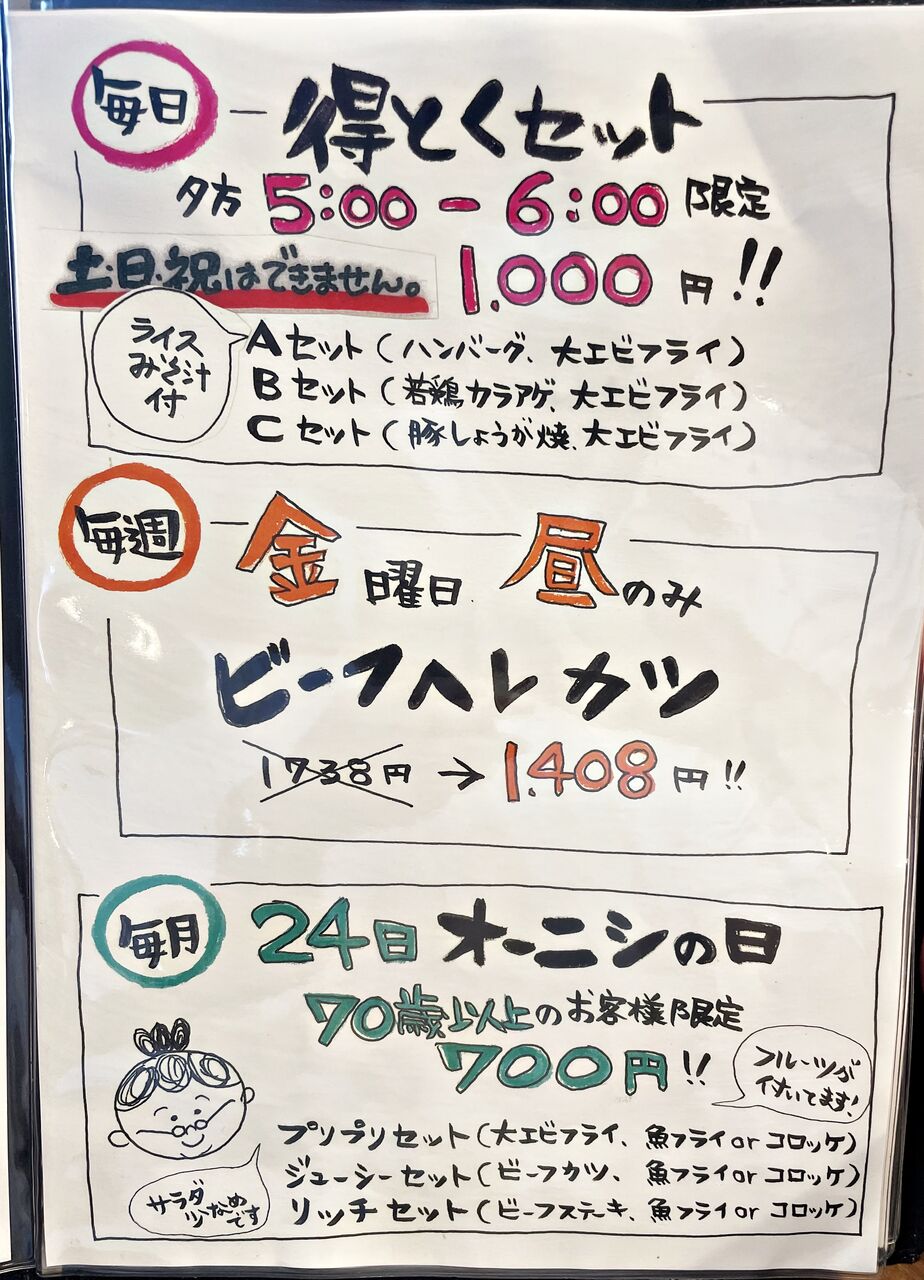 毎日
得とくセット
夕方 5:00 - 6:00 限定
土・日・祝はできません。
1.000円!!
ライス
みそ汁
付
Aセット(ハンバーグ、大エビフライ)
Bセット(若鶏カラアゲ、大エビフライ)
Cセット(豚しょうが焼、大エビフライ)
毎週
金曜日 昼のみ
ビーフヘレカツ
1738円 → 1.408円!!
毎月
24日 オーニシの日
70歳以上のお客様限定
700円!!
フルーツが
付いてます!
プリプリセット(大エビフライ、魚フライorコロッケ)
ジューシーセット(ビーフカツ、魚フライorコロッケ)
リッチセット(ビーフステーキ、魚フライorコロッケ)
サラダ
少なめ
です